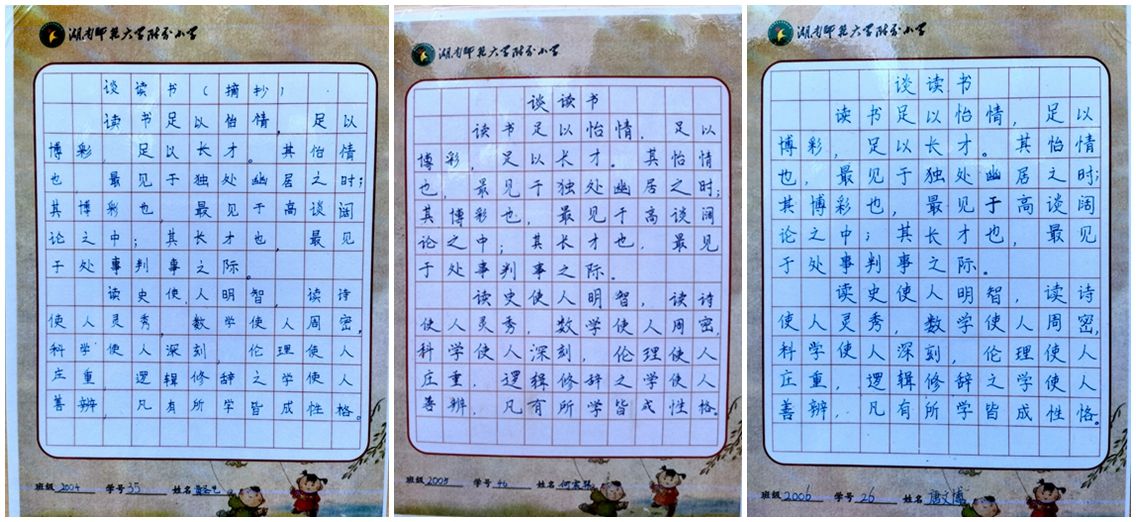 湖南师范大学附属小学
谈读书（摘抄）
读书足以怡情，足以
博彩，足以长才。其怡情
也，最见于独处幽居之时；
其博彩也，最见于高谈阔
论之中；其长才也，最见
于处事判事之际。
读史使人明智，读诗
使人灵秀，数学使人周密，
科学使人深刻，伦理使人
庄重，逻辑修辞之学使人
善辨，凡有所学皆成性格。
班级 2004 学号 35 姓名
谈读书
读书足以怡情，足以
博彩，足以长才。其怡情
也，最见于独处幽居之时；
其博彩也，最见于高谈阔
论之中；其长才也，最见
于处事判事之际。
读史使人明智，读诗
使人灵秀，数学使人周密，
科学使人深刻，伦理使人
庄重，逻辑修辞之学使人
善辨，凡有所学皆成性格。
班级 2005 学号 46 姓名
湖南师范大学附属小学
谈读书
读书足以怡情，足以
博彩，足以长才。其怡情
也，最见于独处幽居之时；
其博彩也，最见于高谈阔
论之中；其长才也，最见
于处事判事之际。
读史使人明智，读诗
使人灵秀，数学使人周密，
科学使人深刻，伦理使人
庄重，逻辑修辞之学使人
善辨，凡有所学皆成性格。
班级 2006 学号 26 姓名 唐文博